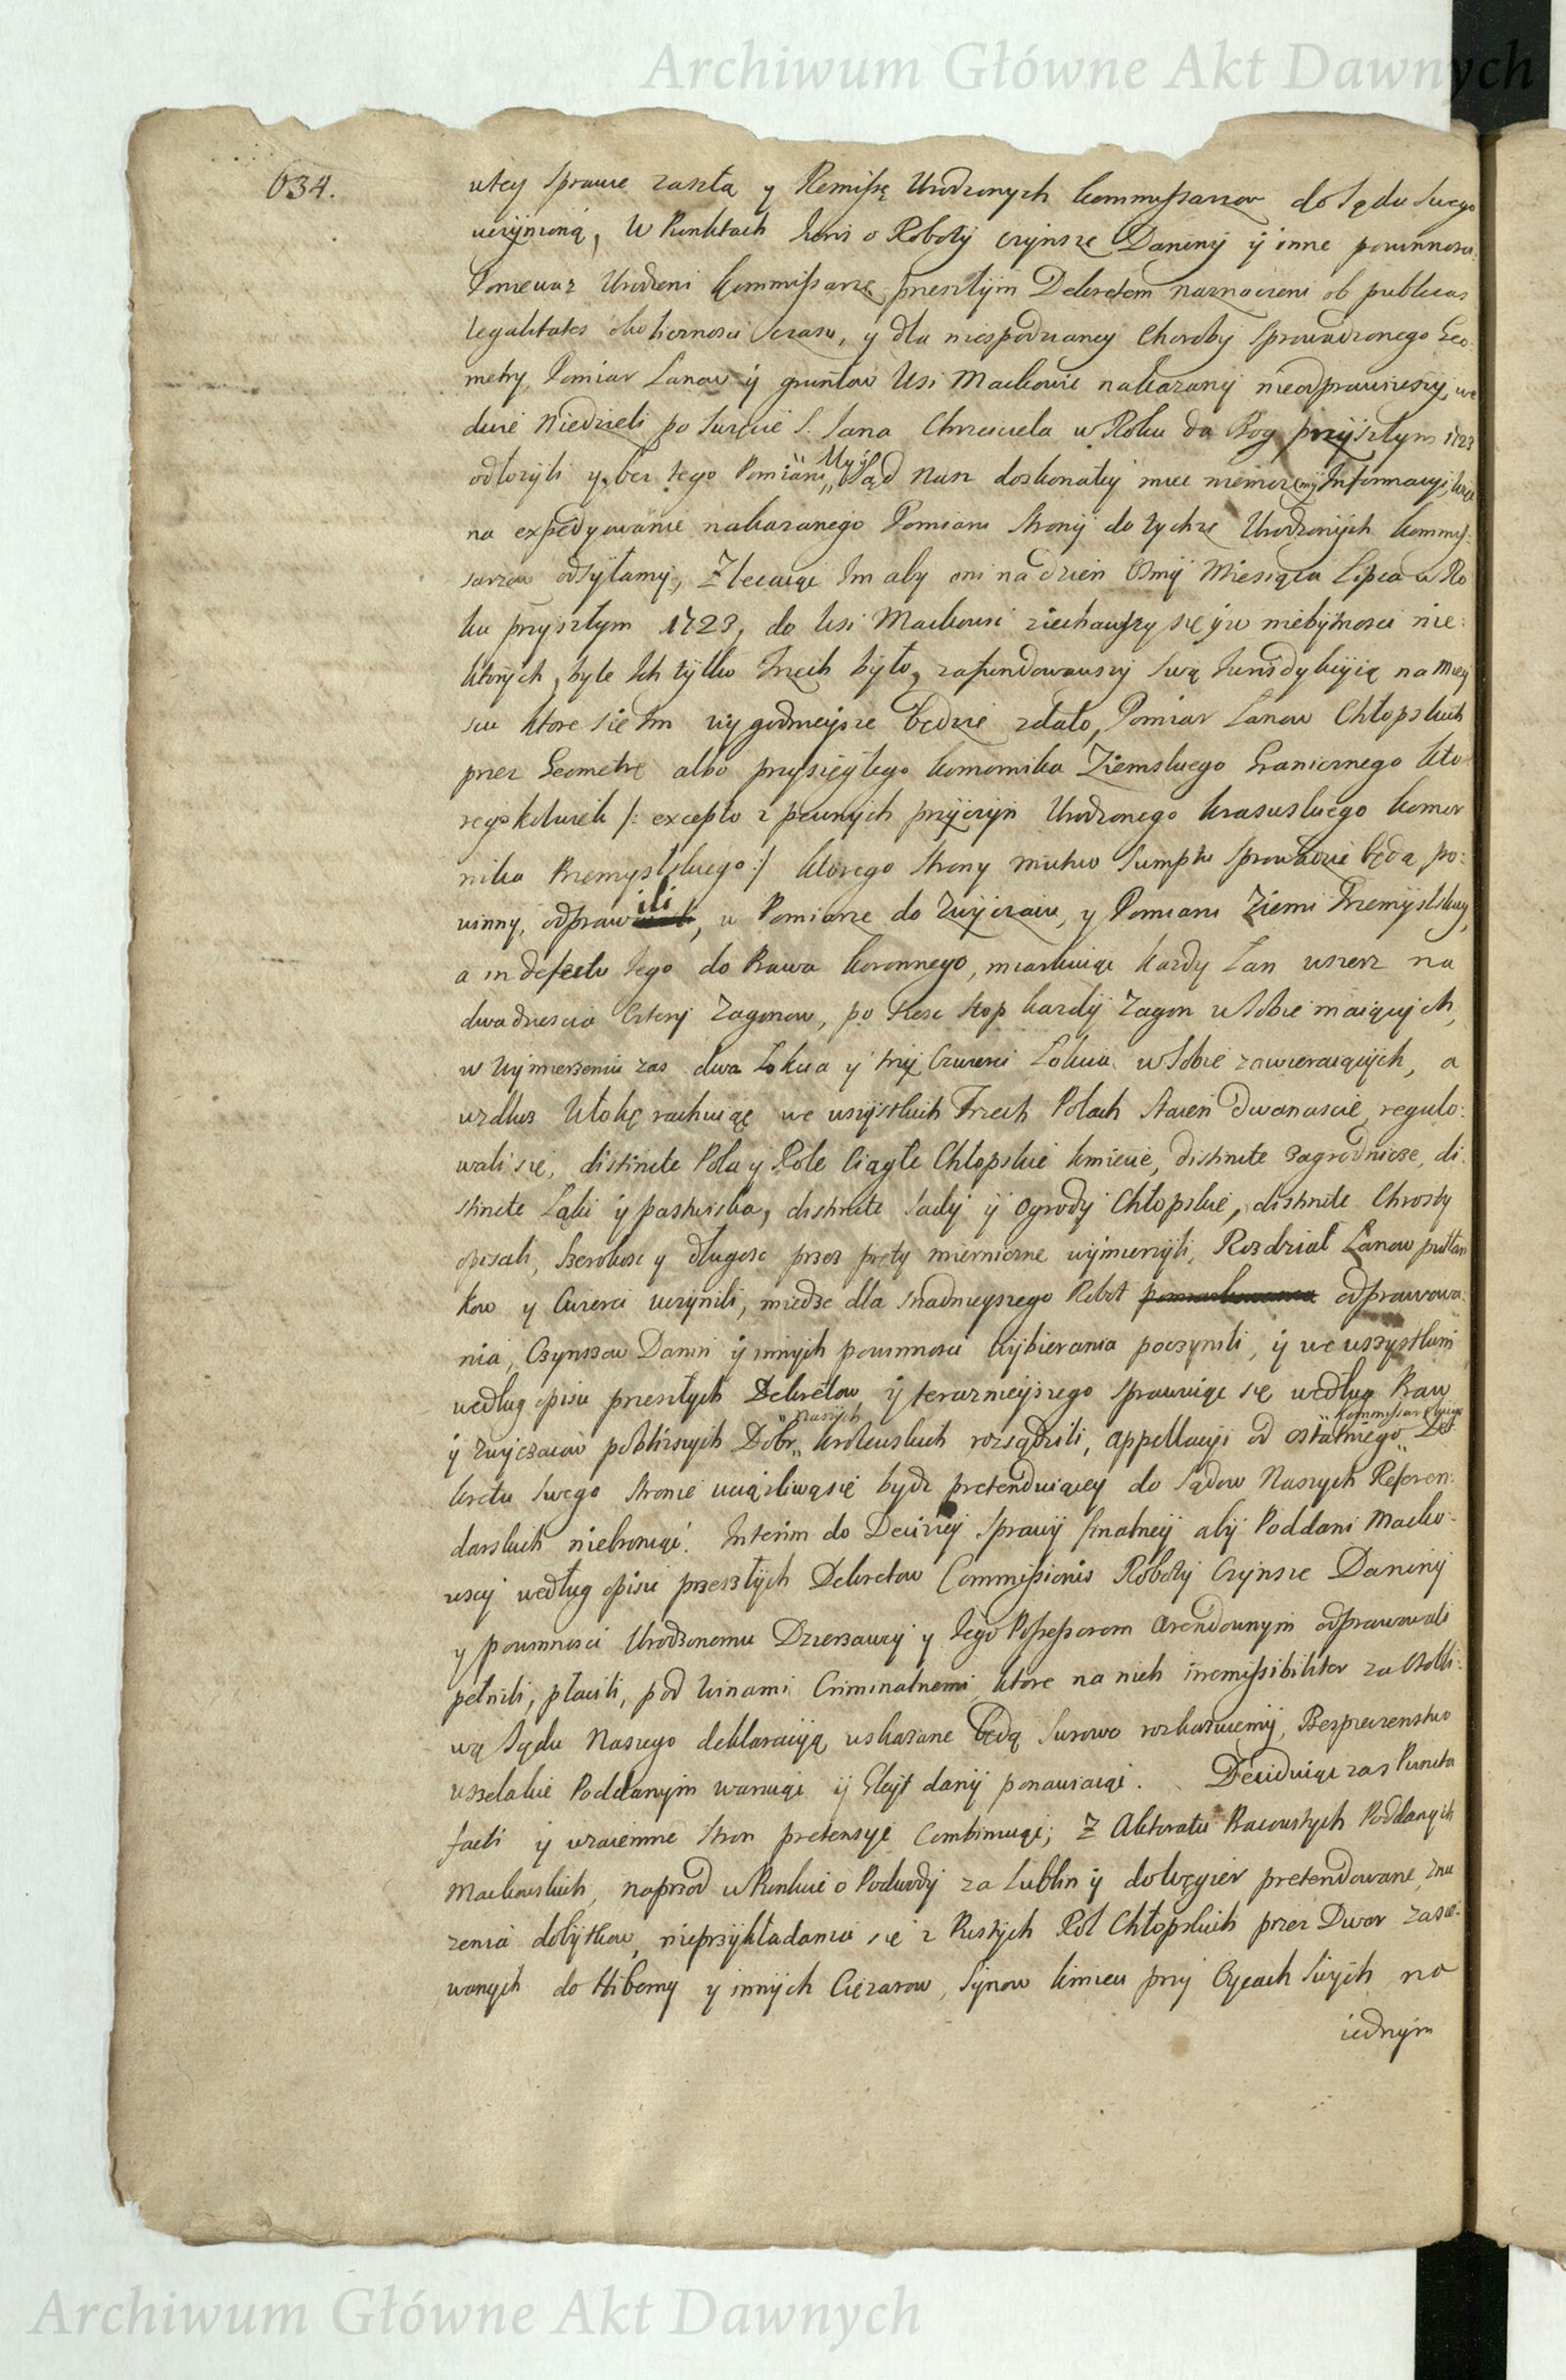 Archiwum Główne Akt Dawnych
634.
wtey sprawie zaszłą y Remissę Urodzonych Kommissarzow do Sądu swego
uczynioną, W Punktach Juris o Roboty czynsze Daniny y inne powinnosci.
Ponieważ Urodzeni Kommissarze przeszłym Dekretem naznaczeni ob publicas
legalitates czasu, y dla niespodzianey Choroby sprowadzonego Geo-
metry, Pomiar Lanow y gruntow Wsi Maćkowic nakazany nieodprawiwszy, we
dwie Niedzieli po Swięcie S. Jana Chrzciciela w Roku da Bog przyszłym 1723
odłożyli y bez tego Pomiaru My Sąd Nasz doskonałey miec niemoże Informacyi,
na expedyowanie nakazanego Pomiaru Strony do tychże Urodzonych Kommis-
sarzow odsyłamy, Zlecaiąc Im aby oni na dzien Osmy Miesiąca Lipca w Ro
ku przyszłym 1723, do Wsi Maćkowic ziechawszy się y w niebytnosci nie:
ktorych, byle Ich tylko Trzech było, zafundowawszy swą Jurisdykcyią na miey
scu ktore się Im wygodnieysze będzie zdało, Pomiar Lanow Chłopskich
przez Geometrę albo przysięgłego Komornika Ziemskiego Granicznego kto
regokolwiek /: excepto z pewnych przyczyn Urodzonego Krasuskiego Komor
nika Przemyslskiego :/ ktorego Strony mutuo sumptu sprowadzic będą po:
winny, odprawili, w Pomiarze do Zwyczaiu, y Pomiaru Ziemi Przemyslskiey,
a in defectu tego do Prawa Koronnego, miarkuiąc kazdy Lan wszerz na
dwadziescia Cztery Zagonow, po szesc stop kazdy Zagon w sobie maiących,
w wymierzeniu zas dwa Łokcia y trzy Czwierci Łokcia w sobie zawieraiących, a
wzdłuz Włokę rachuiąc we wszystkich Trzech Polach staien dwanascie, regulo:
wali się, distincte Pola y Role Ciągłe Chłopskie kmiecie, distincte zagrodnicze, di
stincte Łąki y pastwiska, distincte Sady y Ogrody Chłopskie, distincte Chrosty
opisali, szerokosc y długosc przez pręty miernicze wymierzyli, Rozdział Lanow pułłan
kow y Cwierci uczynili, miedze dla snadnieyszego Robot odprawowa:
nia, Czynszow Danin y innych powinnosci wybierania poczynili, y we wszystkim
według opisu przeszłych Dekretow y terazniejszego sprawuiąc się według Praw
y zwyczaiow poblizszych Dobr Naszych Krolewskich rozsądzili, appellacyi od ostatniego Kommissarskiego De
kretu swego stronie uciążliwą się bydz pretenduiącey do Sądow Naszych Referen:
darskich niebroniąc. Interim do Decizyi sprawy finalney aby Poddani Maćko-
wscy według opisu przeszłych Dekretow Commissionis Roboty Czynsze Daniny
y powinnosci Urodzonemu Dzierzawcy y Jego Possessorom Arendownym odprawowali
pełnili, płacili, pod winami Criminalnemi ktore na nich irremissibiliter za
wą Sądu Naszego deklaracyią wskazane będą surowo rozkazuiemy, Bespieczenstwo
wszelakie Poddanym waruiąc y Glejt dany ponawiaiąc. Deciduiąc zas Puncta
facti y wzaiemne stron pretensye Combinuiąc; Z Aktoratu Pracowitych Poddanych
Maćkowskich, naprzod w Punkcie o Podwody za Lublin y do Węgier pretendowane, znu
zenia dobytkow, nieprzykładania się z Pustych Rol Chłopskich przez Dwor zasie:
wanych do Hiberny y innych Ciężarow, Synow Kmieci przy Oycach swych na
iednym
Archiwum Główne Akt Dawnych